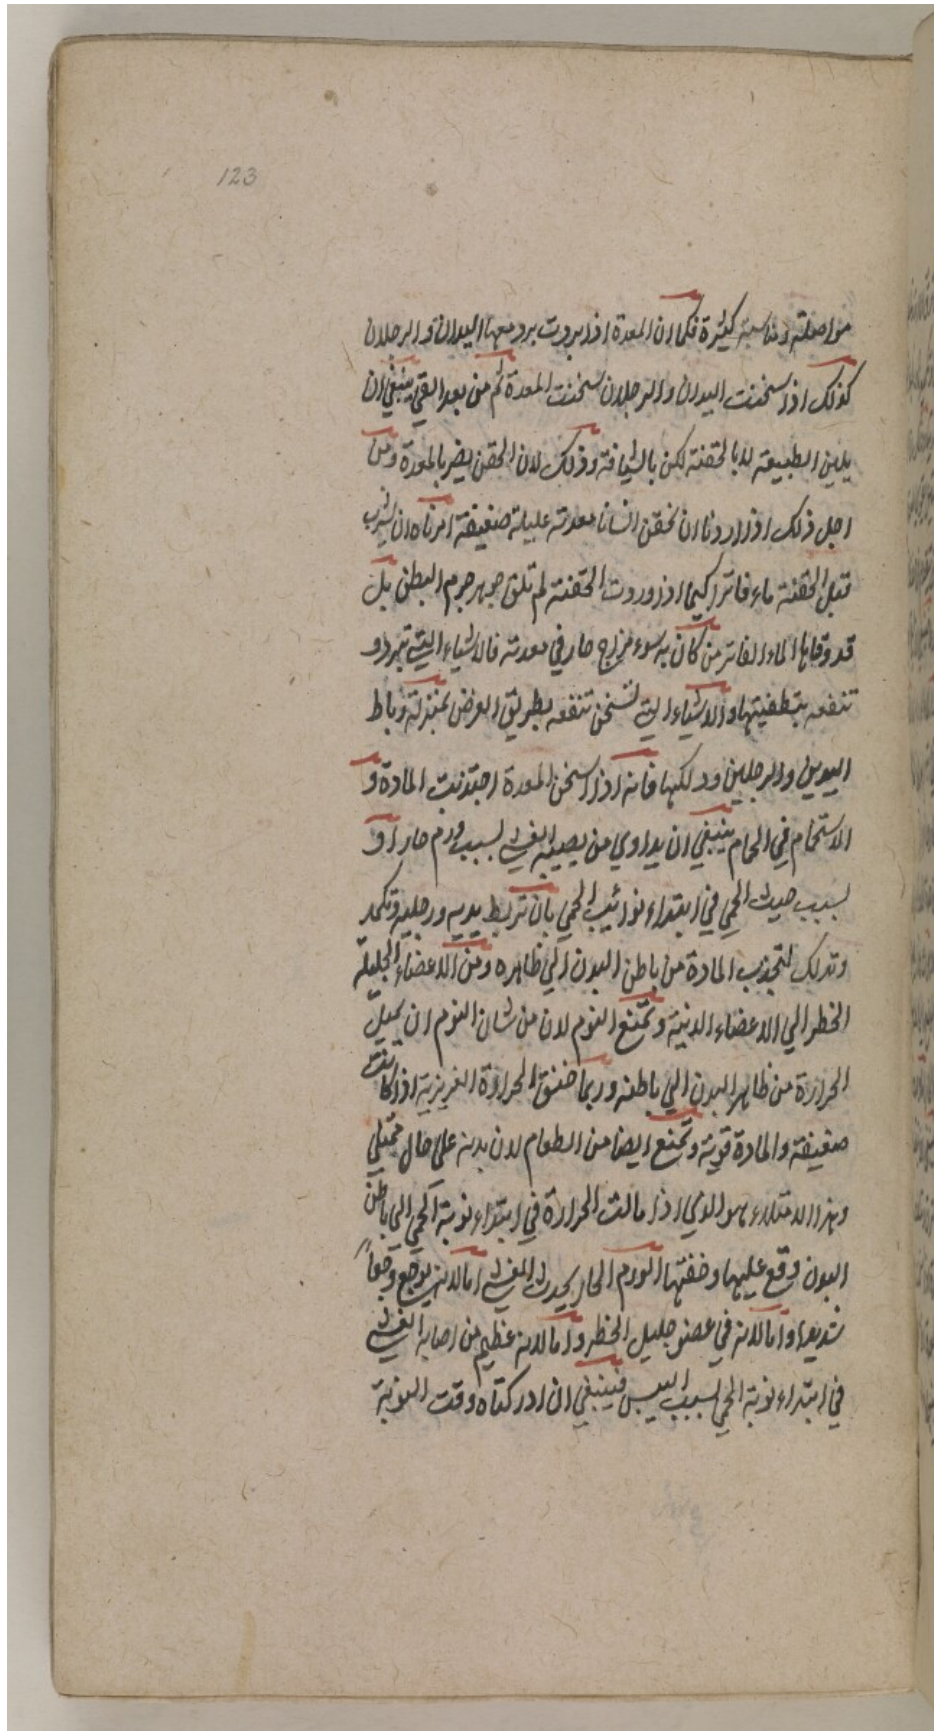 123
مواصلته ومناسبة كثيرة فكما ان المعدة اذا بردت برد معها اليدان والرجلان
كذلك اذا سخنت اليدان والرجلان سخنت المعدة ثم من بعد القي ينبغي ان
يلين الطبيعة لا بالحقنة لكن بالشيافة وذلك لان الحقن يضر بالمعدة ومن
اجل ذلك اذا اردنا ان نحقن انسانا معدته عليلة ضعيفة امرناه ان يشرب
قبل الحقنة ماء فاترا كيما اذا وردت الحقنة لم تلق جوهر جرم البطن بل
قد وقاها الماء الفاتر من كان به سوء مزاج حار في معدته فالاشياء التي تبرد و
تنفعه بتطفيتها والاشياء التي تسخن تنفعه بطريق العرض بمنزلة رباط
اليدين والرجلين ودلكها فانه اذا سخن المعدة اجتذبت المادة و
الاستحمام في الحمام ينبغي ان يداوي من يصيبه الغشي بسبب ورم حار او
بسبب حدث الحمي في ابتداء نوائب الحمي بان تربط يديه ورجليه وتكمد
وتدلك لتجذب المادة من باطن البدن الي ظاهره ومن الاعضاء الجليلة
الخطر الي الاعضاء الدنية وتمنع النوم لان من شان النوم ان يميل
الحرارة من ظاهر البدن الي باطنه وربما خنق الحرارة الغريزية اذا كانت
ضعيفة والمادة قوية وتمنع ايضا من الطعام لان بدنه علي حال ممتلي
وهذا الامتلاء هو الذي اذا مالت الحرارة في ابتداء نوبة الحمي الي باطن
البدن وقع عليها وخنقها الورم الحار يحدث الغشي اما لانه يوجع وجعا
شديدا واما لانه في عضو جليل الخطر واما لانه عظيم من اصابه الغشي
في ابتداء نوبة الحمي بسبب اليبس فينبغي ان ادركناه وقت النوبة